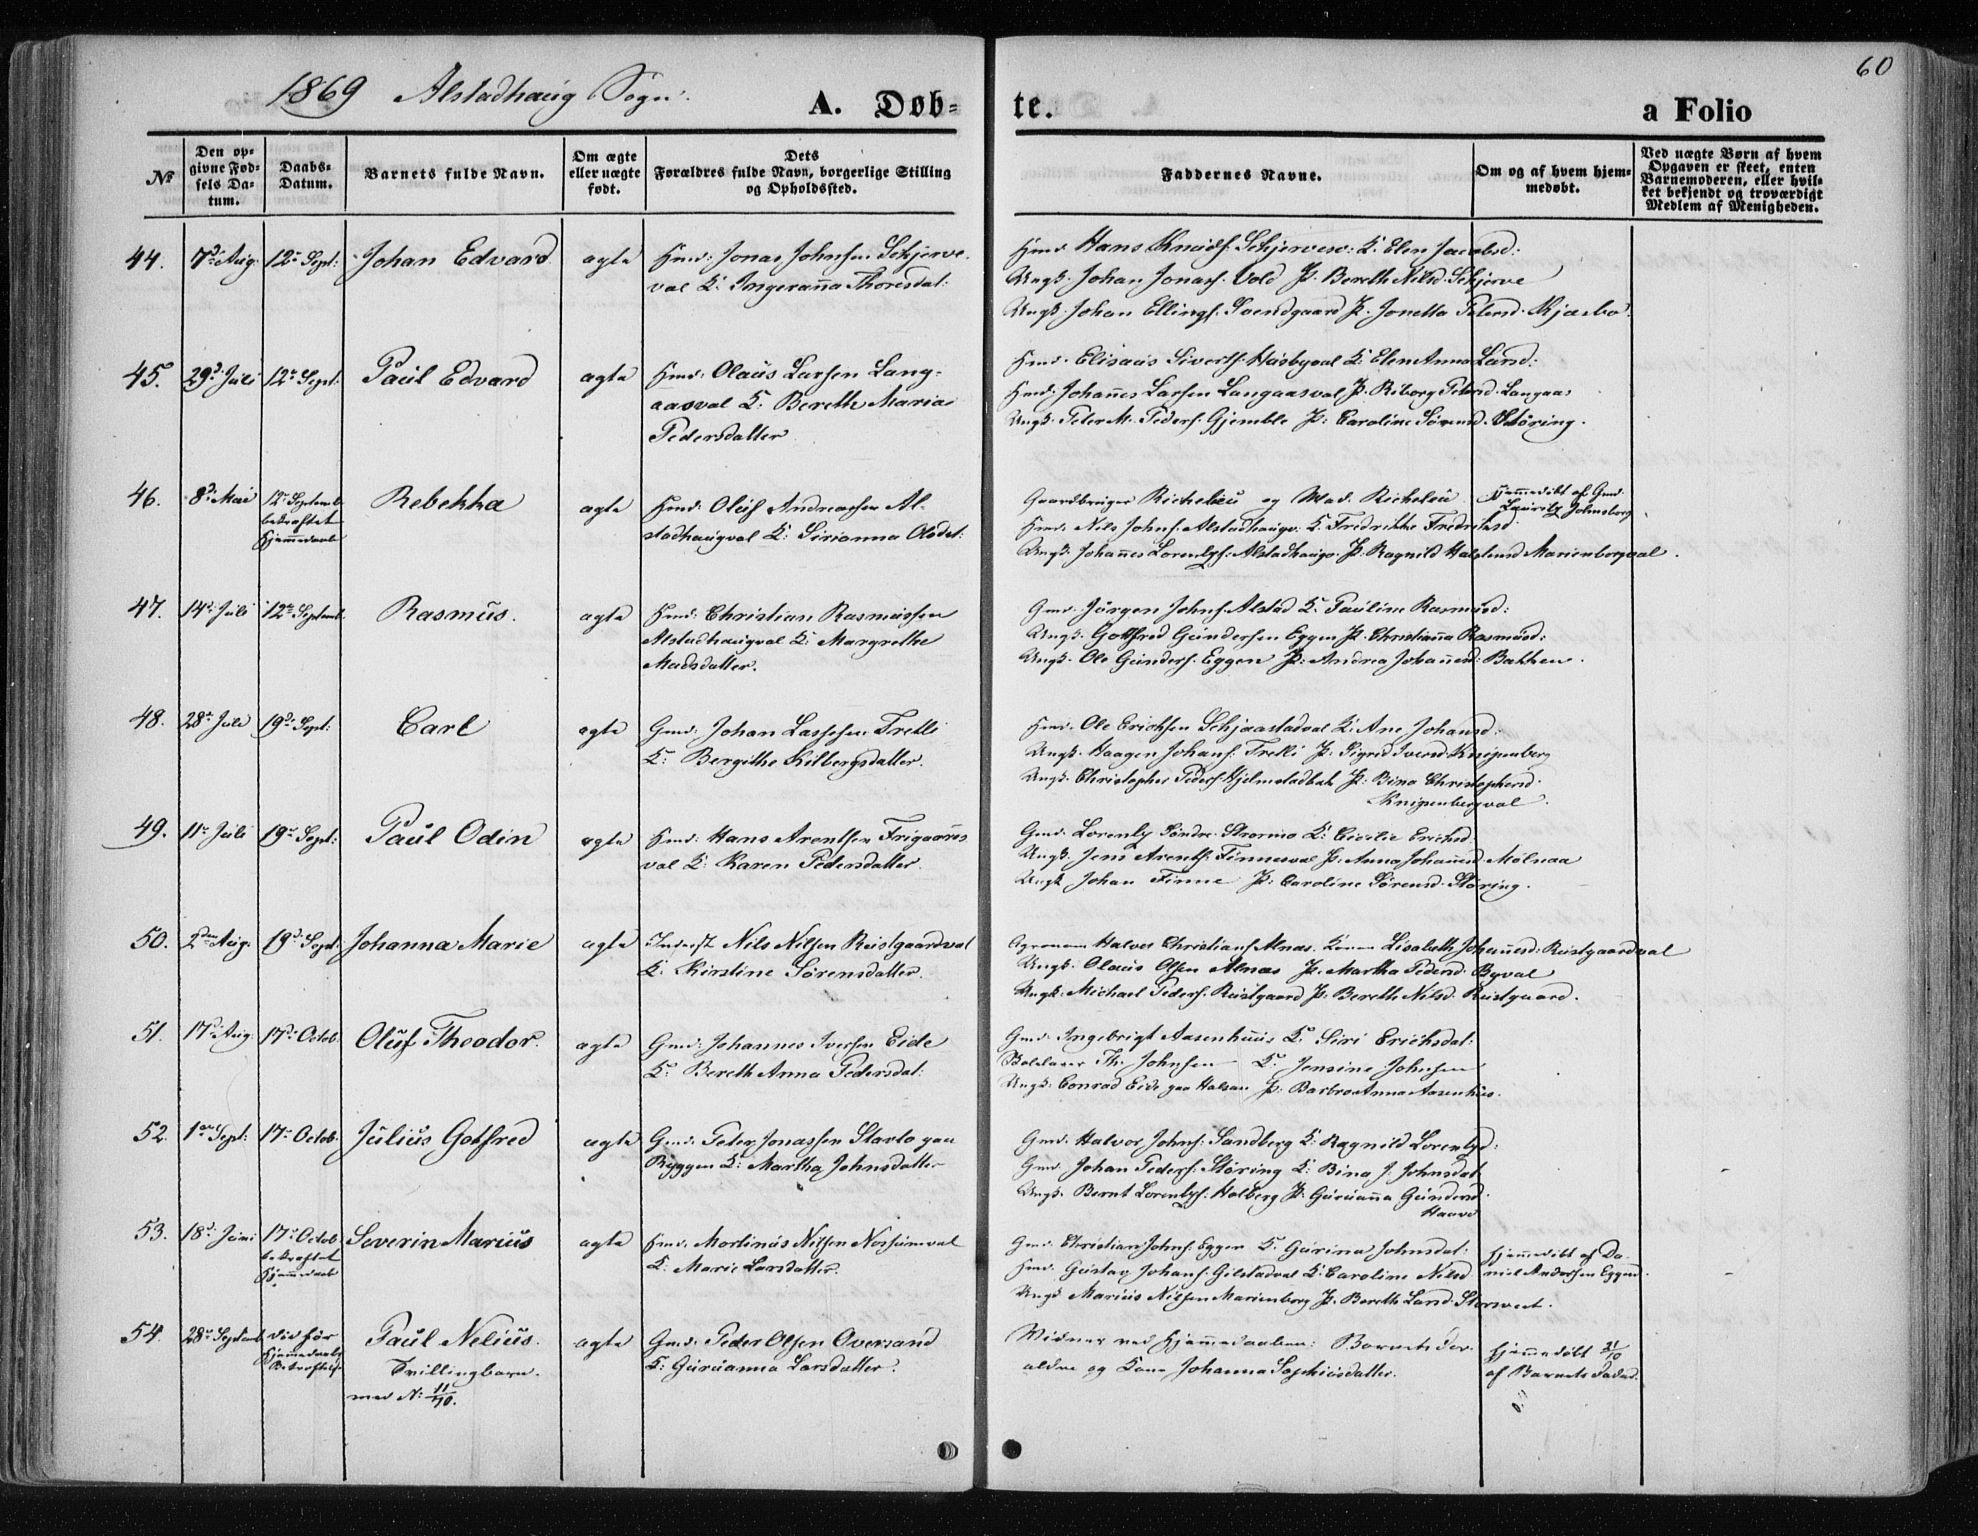 1869 Alstadhaug Sogn.
A. Døb-
te.
a Folio
60
No
Den op-
givne Fød-
sels Da-
tum.
Daabs-
Datum.
Barnets fulde Navn.
Om ægte
eller uægte
født.
Dets
Forældres fulde Navn, borgerlige Stilling
og Opholdssted.
Faddernes Navne.
Om og af hvem hjem-
medøbt.
Ved uægte Børn af hvem
Opgaven er skeet, enten
Barnemoderen, eller hvil-
ket bekjendt og troværdigt
Medlem af Menigheden.
44. 7d Aug. 12te Sept: Johan Edvard ægte Hmd: Jonas Johnsen Schjerve-
val K: Ingeranna Thoresdat:
Hmd. Hans Knuds: Schjervesv: K. Elen Jacobsd:
Ungk. Johan Jonass. Vold P. Bereth Nilsd. Schjerve
Ungk. Johan Ellings. Svendgaard P. Jonetta Petersd.
45. 29d Juli 12te Sept: Paul Edvard ægte Hmd: Olaus Larsen Lang-
aasval K: Bereth Maria
Pedersdatter
Hmd. Elisæus Siverts. Husbyval K. Elen Anna Larsd:
Hmd. Johañes Larsen Langaasval P. Petersd. Langaas
Ungk. Peter M. Peders. Gjemble P: Caroline Sörensd. Störing.
46. 8d Mai 12te Septemb. Rebekka ægte Hmd: Oluf Andreasen Al-
bekræftet
Hjemmedaab
stadhaugval K: Sirianna Olsdat:
Gaardbruger Richelieu og Mad. Richelieu
Hmd. Nils Johns. Alstadhaugv. K. Fredrikke Fredriksd.
Ungk. Johañes Lorentzs. Alstadhaugv. P. Ragnild Halstensd Marienborgval.
Hjemmedøbt af Gmd.
Lauritz Johnsborg
47. 14d Juli 12te Septemb. Rasmus. ægte Hmd: Christian Rasmussen
Alstadhaugval K: Margrethe
Madsdatter.
Gmd. Jörgen Johns. Alstad K. Pauline Rasmusd:
Ungk. Gottfred Gundersen Eggen P. Christianna Rasmusd:
Ungk. Ole Gunders. Eggen P: Andrea Johañesd: Bakken.
48. 28de Juli 19d Sept: Carl ægte Gmd: Johan Lassesen Tretli
K: Bergithe Kilbergsdatter.
Hmd. Ole Erichsen K. Ane Johansd:
Ungk. Haagen Johans: Tretli P. Sigrid Iversd. Knipenberg
Ungk. Christopher Peders. P. Bina Christophersd.
Knipenbergval.
49. 11te Juli 19de Sept: Paul Odin ægte Hmd: Hans Arentsen Frigaards-
val K: Karen Pedersdatter.
Gmd. Lorentz Söndre Stromo K. Cicilie Erichsd.
Ungk. Jens Arents. Finneval P. Anna Johañesd. Mölnaa
Ungk Johan Finne P: Caroline Sörensd. Störing.
50. 2den Aug. 19d Sept: Johanna Marie ægte Inderst Nils Nilsen Rustgaardval
K: Kirstine Sörensdatter.
Agronom Halvor Christians. Alnæs. Konen Lisabeth Johañesd: Rustgaardval
Ungk. Olaus Olsen Alnæs P. Martha Pedersd. Byval
Ungk. Michael Peders. Rustgaard P. Bereth Nilsd. Rustgaard.
51. 17d Aug. 17d Octob. Oluf Theodor. ægte Gmd. Johannes Iversen Eide
K: Bereth Anna Pedersdat:
Gmd. Ingebrigt Aasenhuus K. Siri Erichsdat:
Th. Johnsen K. Jensine Johnsen
Ungk. Conrad Eide paa Halsan P. Barbroe Anna Aasenhus.
52. 1ste Sept: 17de Octob. Julius Gotfred ægte Gmd: Peter Jonassen Slavlo paa
Ryggen K: Martha Johnsdatter
Gmd. Halvor Johns. Sandberg K. Ragnild Lorentzd:
Gmd. Johan Peders. Störing K. Bina J. Johnsdat
Ungk. Bernt Lorentzs. Holberg P. Guruanna Gundersd.
53. 18d Juni 17de Octob. Severin Marius ægte Hmd. Mortinus Nilsen Norsumval
bekræftet
Hjemmedaab
K. Marie Larsdatter.
Gmd. Christian Johns. Eggen K. Gurina Johnsdat.
Hmd. Gustav Johans. Gilstadval K. Caroline Nilsd
Ungk Marius Nilsen Marienborg P. Bereth Larsd. Storvest.
Hjemmedøbt af Da-
niel Andersen Eggen.
54. 28de Septemb. död för Paul Nelius. ægte Gmd: Peder Olsen Oversand
Hjemmedaabs
Bekræftelse
Tvillingbarn.
med N: 11/10.
K: Guruanna Larsdatter.
Vidner ved Hjemmedaaben: Barnets For-
ældre og Kone Johanna Sophiusdatter.
Hjemmedøbt
af Barnets Fader.